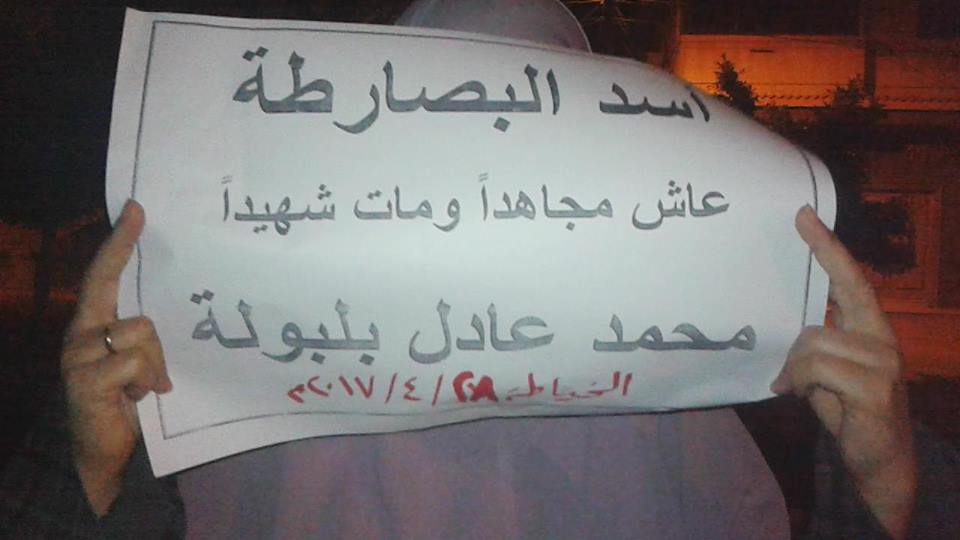 أسد البصارطة
عاش مجاهداً ومات شهيداً
محمد عادل بلبولة
الخياطة ٢٨/٤/٢٠١٧م